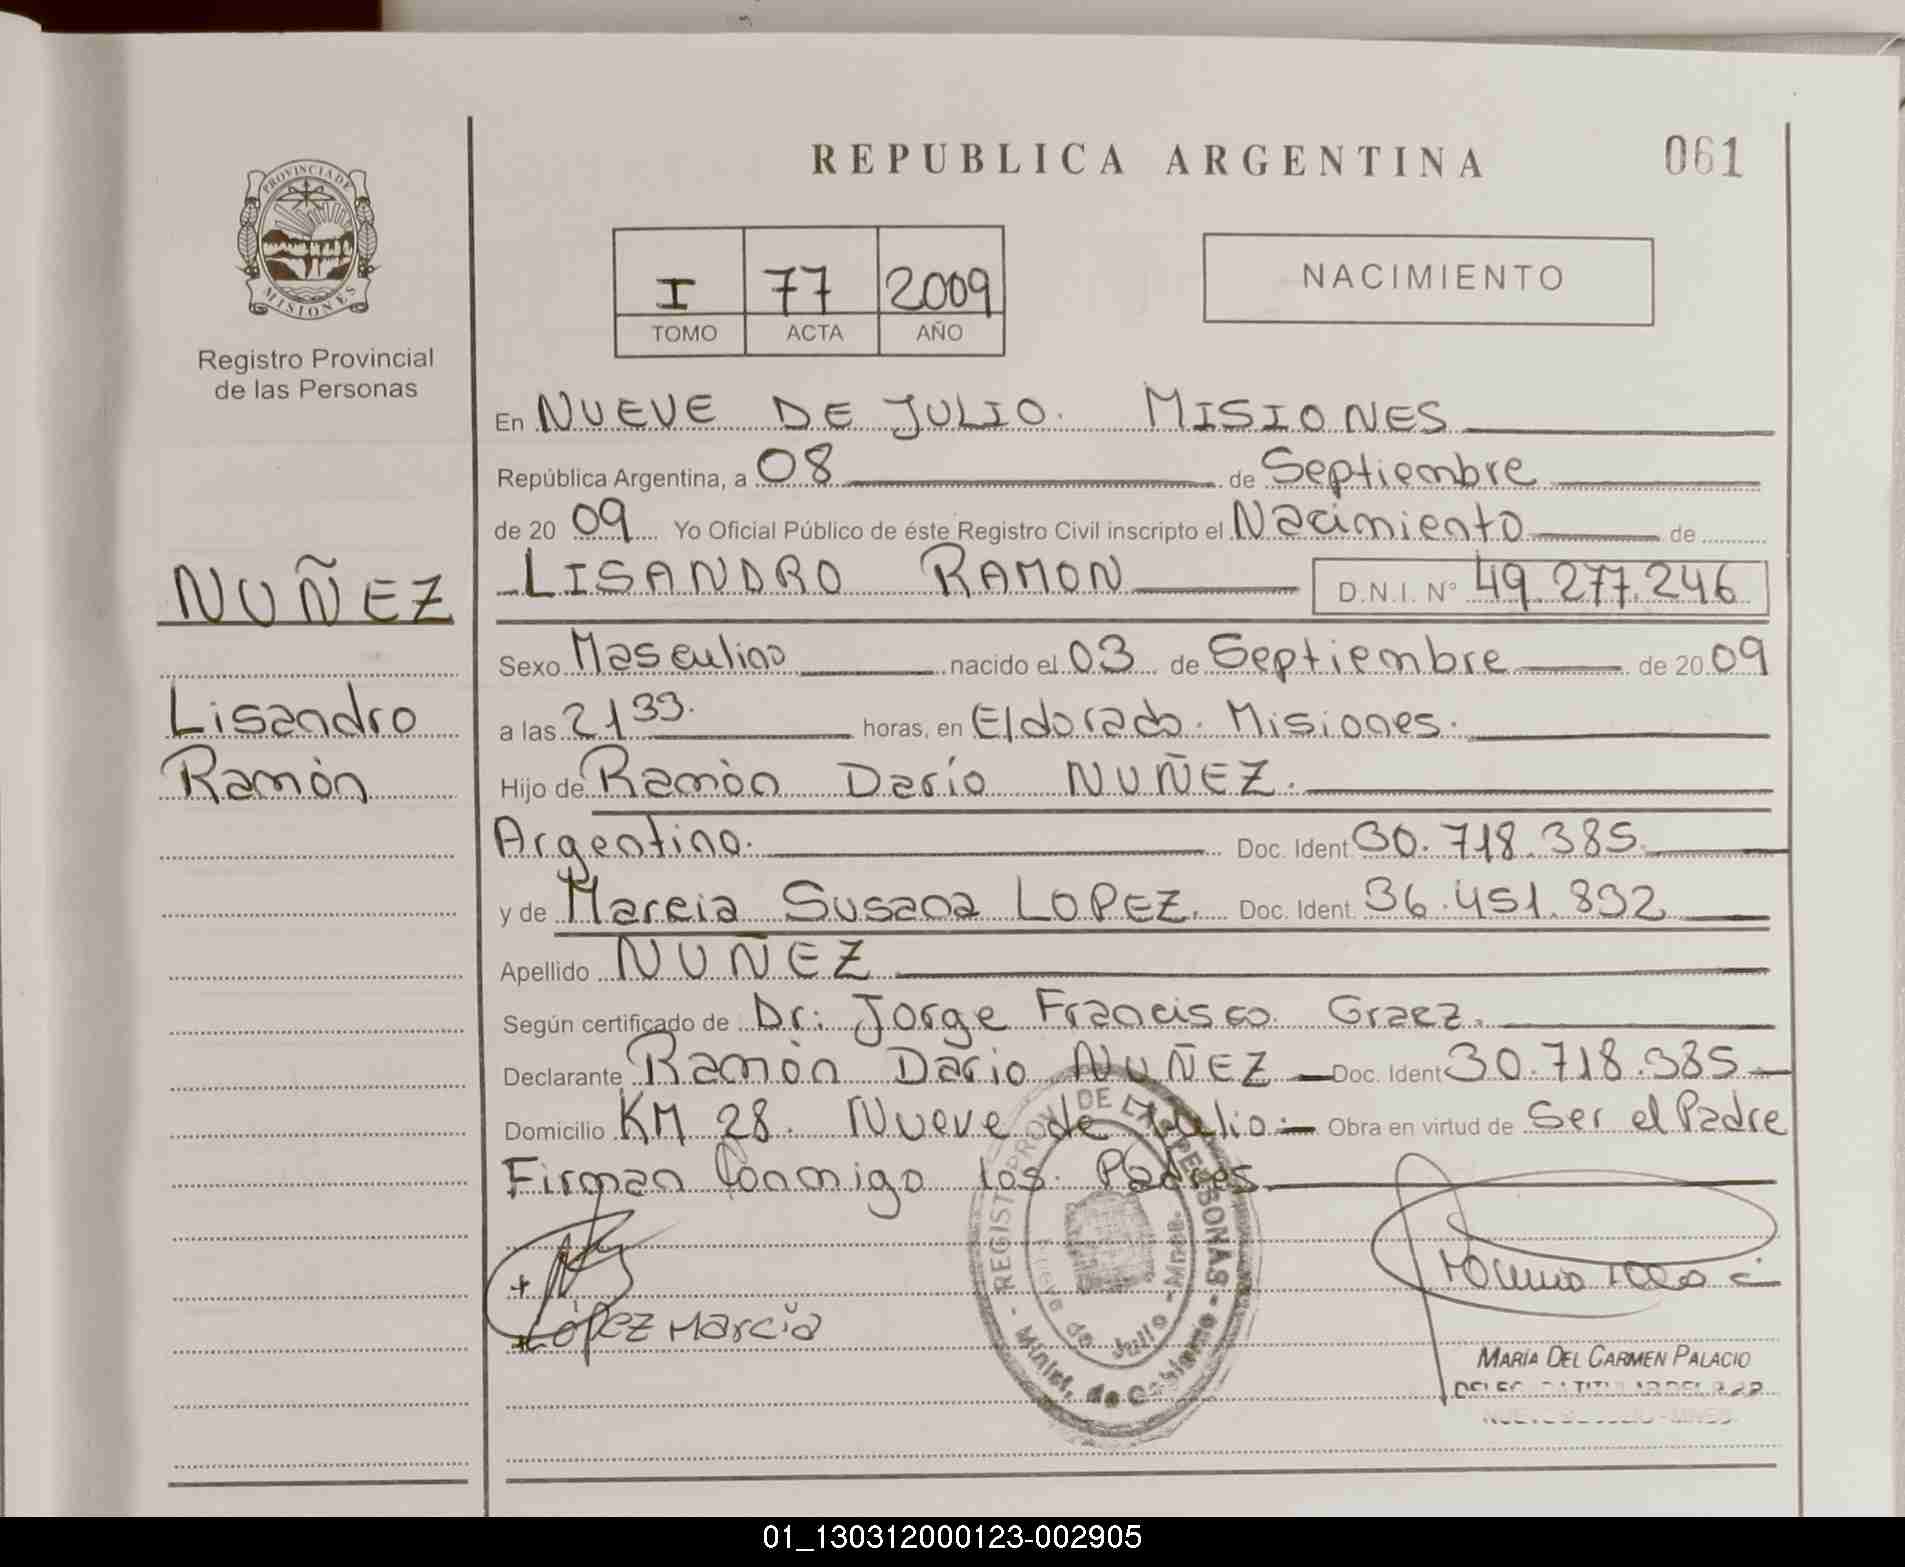 REPUBLICA ARGENTINA
061
PROVINCIA DE
MISIONES
Registro Provincial
de las Personas
I 77 2009
TOMO ACTA AÑO
NACIMIENTO
En NUEVE DE JULIO. MISIONES
República Argentina, a 08 de Septiembre
de 20 09 Yo Oficial Público de éste Registro Civil inscripto el Nacimiento de
LISANDRO RAMON D.N.I. N° 49.277.246
NUÑEZ
Lisandro
Ramòn
Sexo Masculino nacido el 03 de Septiembre de 20 09
a las 21 horas, en Eldorado. Misiones.
Hijo de Ramòn Darío NUÑEZ.
Argentino. Doc. Ident 30.718.385.
y de Marcia Susana LOPEZ. Doc. Ident. 36.451.892
Apellido NUÑEZ
Según certificado de Dr: Jorge Francisco
Declarante Ramòn Dario NUÑEZ Doc. Ident 30.718.385
Domicilio KM 28. Nueve de Julio. Obra en virtud de Ser el Padre
Firman Conmigo los Padres
López Marcia
REGIST. PROV. DE LAS PERSONAS
Minist. de Gobierno
Nueve de Julio - Mnes.
MARÍA DEL CARMEN PALACIO
01_130312000123-002905